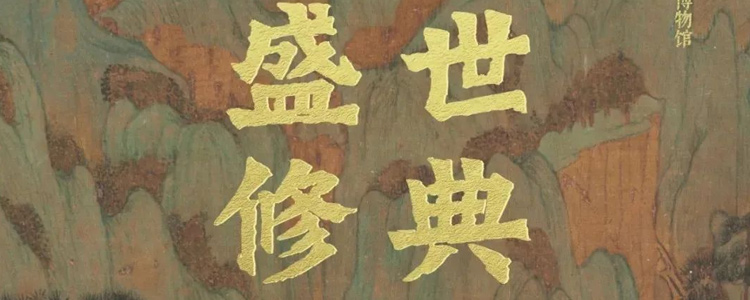 盛世
修典
物馆